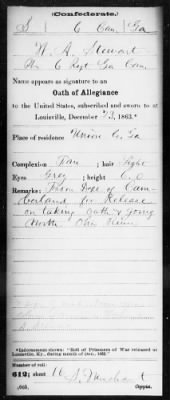 (Confederate.)
S 6 Cav. Ga
W. A. Stewart
6 Regt Ga Cav.
Name appears as signature to an
Oath of Allegiance
to the United States, subscribed and sworn to at
Louisville, December 1863.*
Place of residence Union C. Ga
Complexion Fair; hair Light
Eyes Grey; height 6.0
Remarks: From Dept of Cum-
berland for Release
on taking Oath & going
North Ohio River
*Indorsement shows: "Roll of Prisoners of War released at
Louisville, Ky., during month of Dec., 1863."
Number of roll:
612; sheet
Copyist.